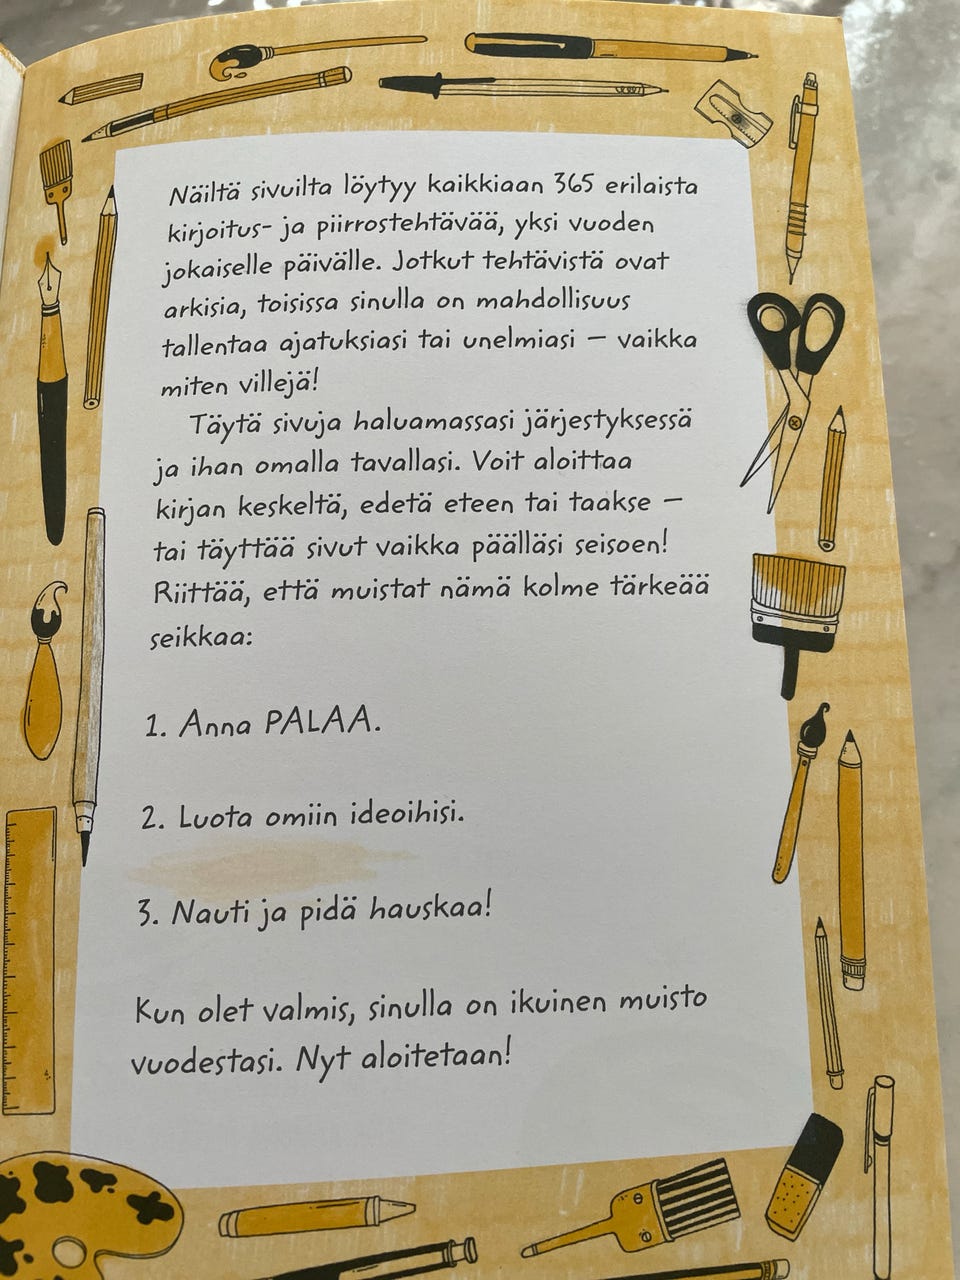 Näiltä sivuilta löytyy kaikkiaan 365 erilaista
kirjoitus- ja piirrostehtävää, yksi vuoden
jokaiselle päivälle. Jotkut tehtävistä ovat
arkisia, toisissa sinulla on mahdollisuus
tallentaa ajatuksiasi tai unelmiasi – vaikka
miten villejä!
Täytä sivuja haluamassasi järjestyksessä
ja ihan omalla tavallasi. Voit aloittaa
kirjan keskeltä, edetä eteen tai taakse –
tai täyttää sivut vaikka päälläsi seisoen!
Riittää, että muistat nämä kolme tärkeää
seikkaa:
1. Anna PALAA.
2. Luota omiin ideoihisi.
3. Nauti ja pidä hauskaa!
Kun olet valmis, sinulla on ikuinen muisto
vuodestasi. Nyt aloitetaan!